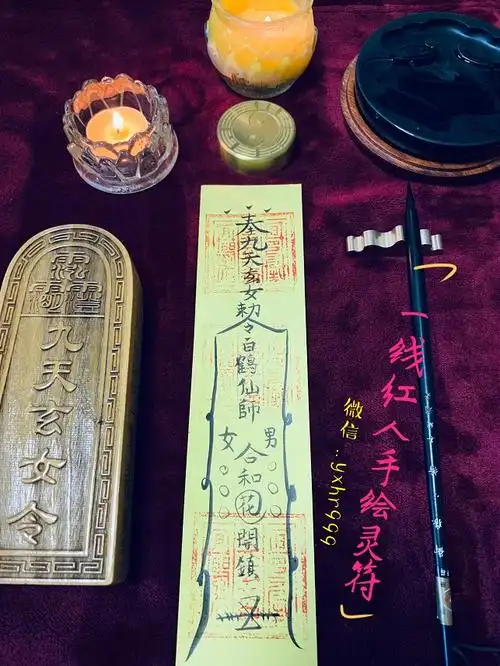 九天玄女令
奉九天玄女勅令白鶴仙師
男
女
合和花開鎮
「一线红人手绘灵符」
微信：yxhr999